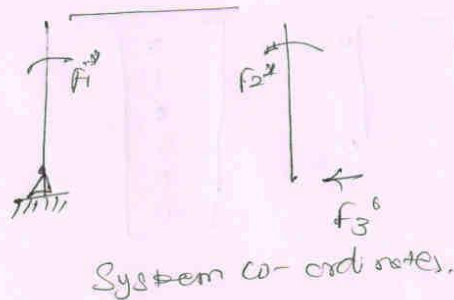 F1*
F2*
F3
System co-ordinates.